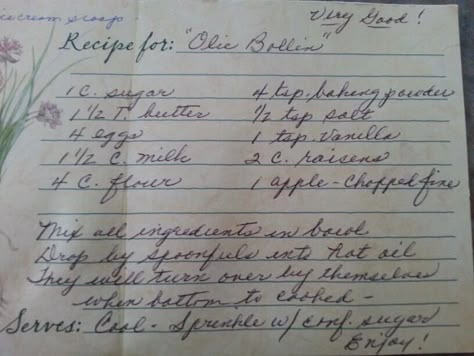 ice cream scoop
Very Good!
Recipe for: "Olie Bollin"
1 C. sugar 4 tsp. baking powder
1 1/2 T. butter 1/2 tsp salt
4 eggs 1 tsp. Vanilla
1 1/2 C. milk 2 C. raisens
4 C. flour 1 apple - chopped fine
Mix all ingredients in bowl
Drop by spoonfuls into hot oil
They will turn over by themselves
when bottom is cooked -
Serves: Cool - Sprinkle w/ conf. sugar
Enjoy!